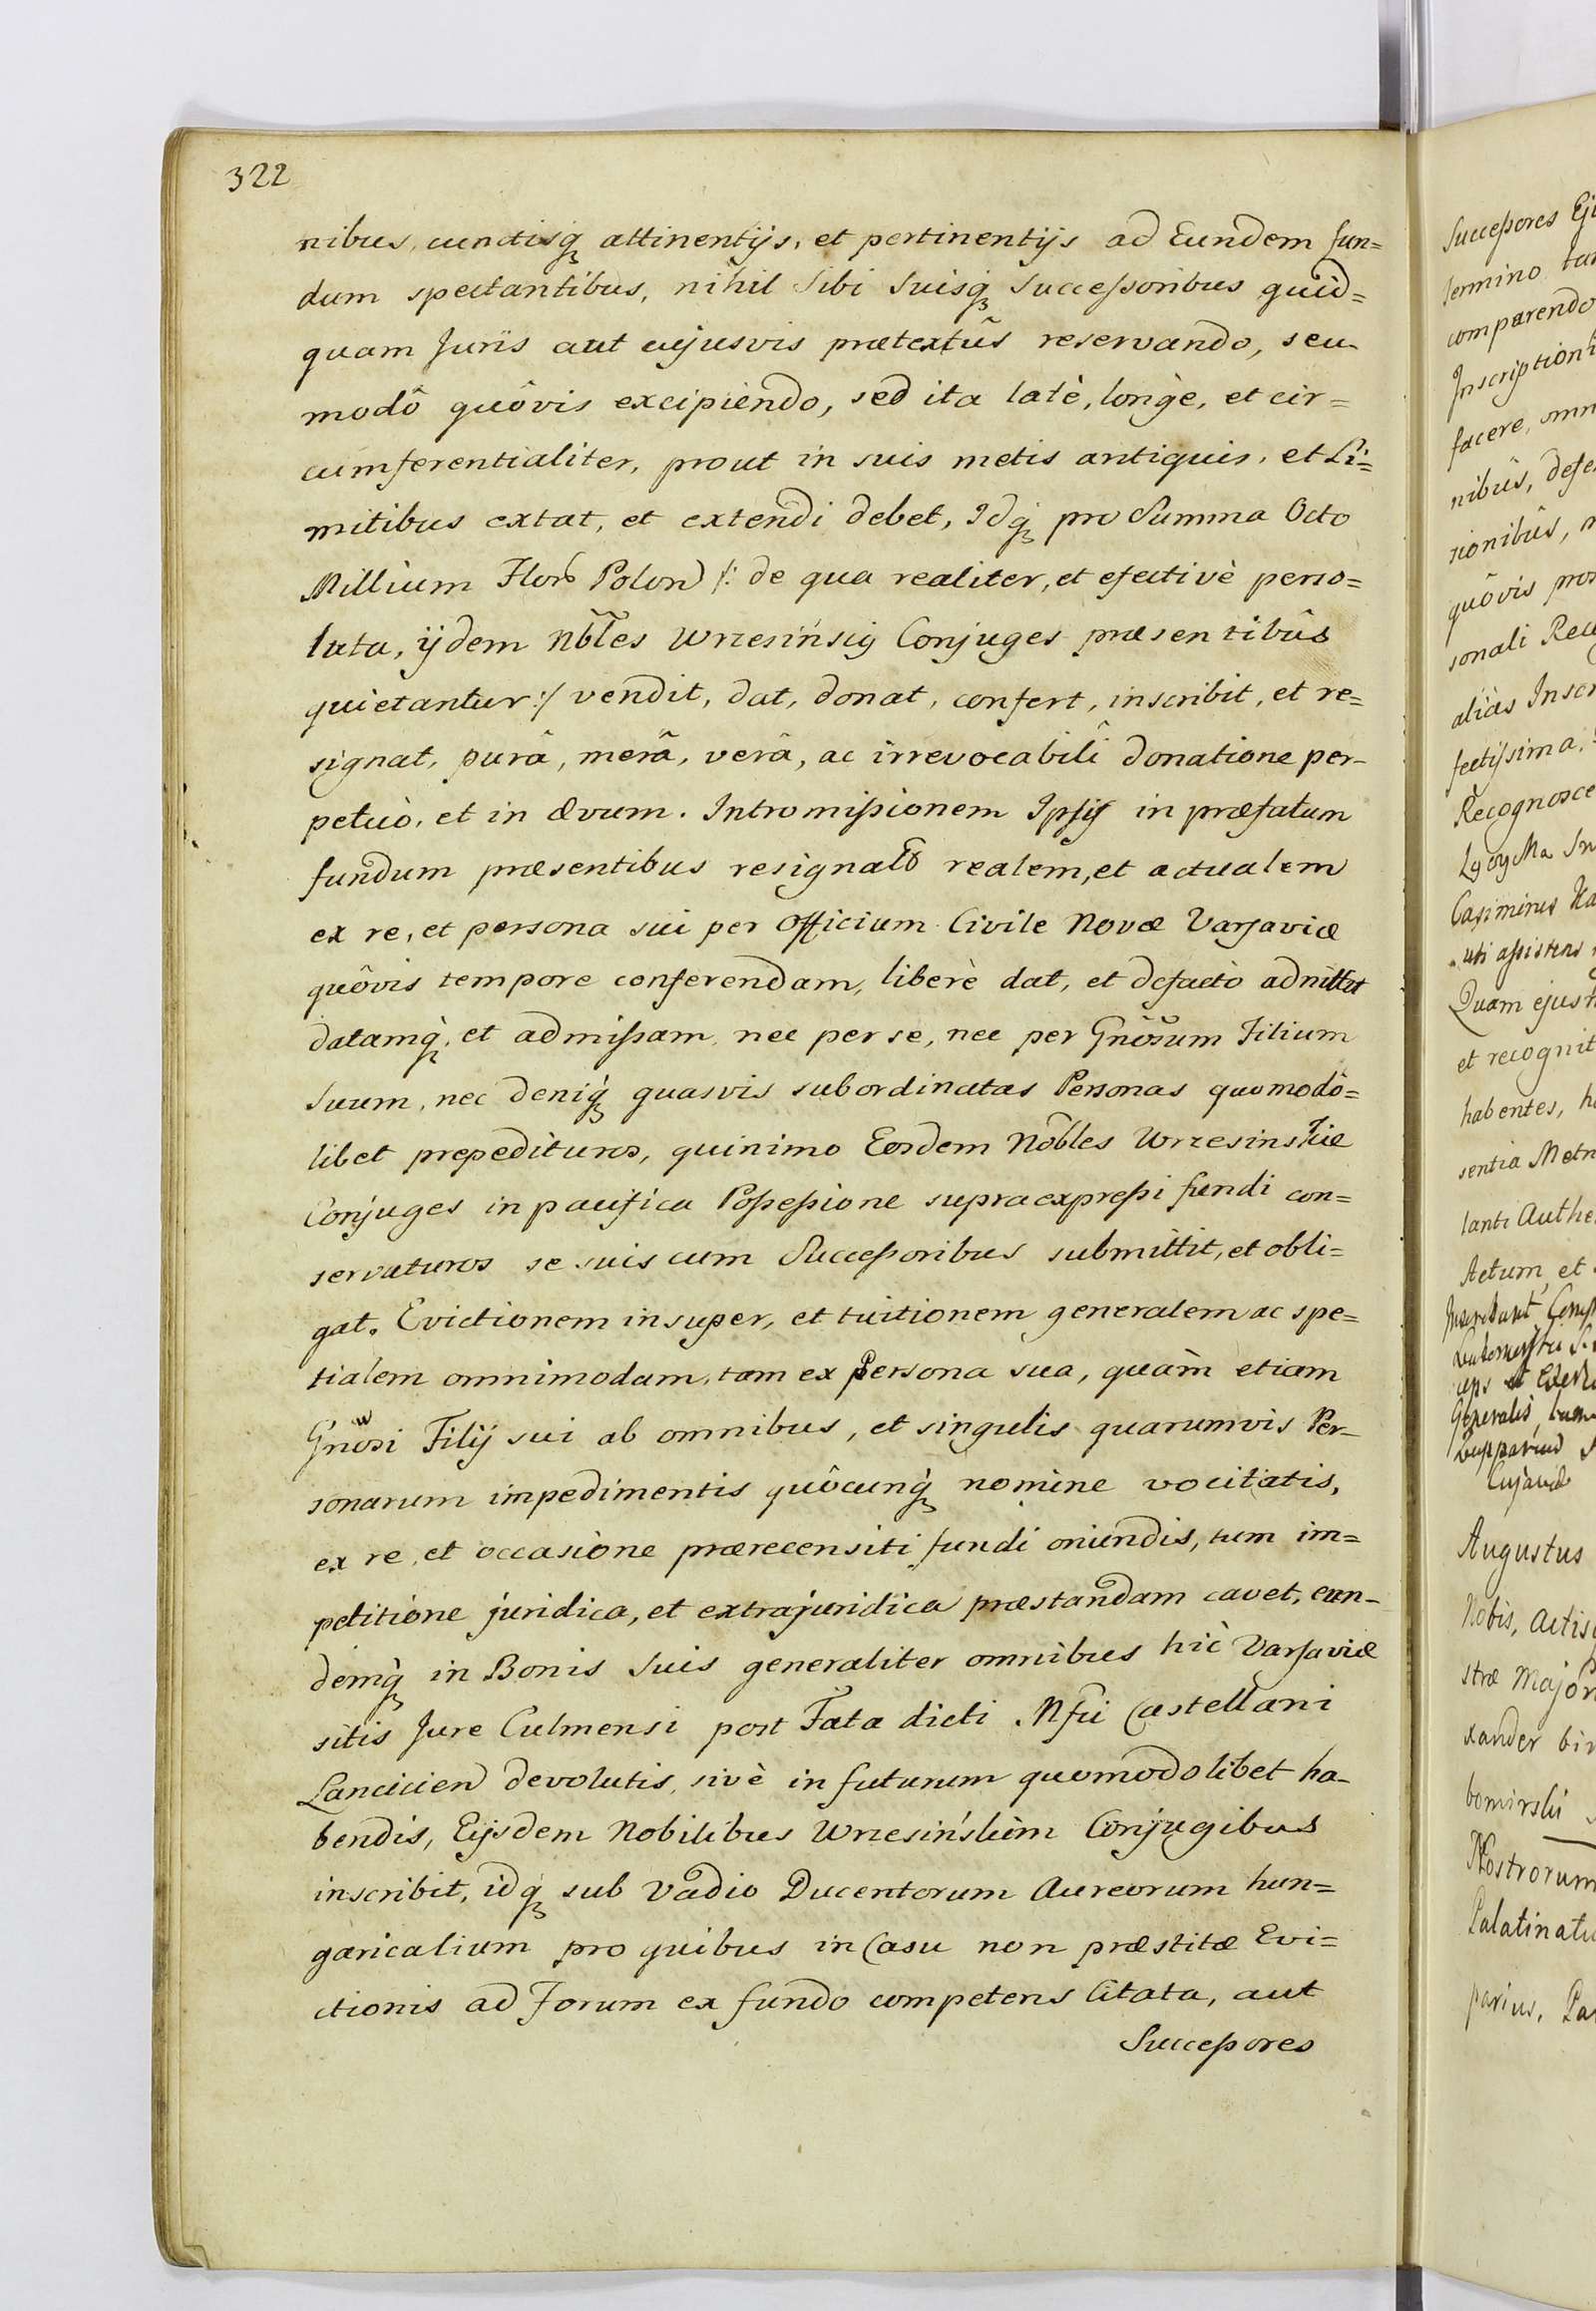 322
nibus, cunctisq, attinentijs, et pertinentijs ad Eundem fun=
dum spectantibus, nihil Sibi Suisq, Successoribus quid=
quam Juris aut cujusvis prætextûs reservando, seu
modô quôvis excipiendo, sed ita latè, longè, et cir=
cumferentialiter, prout in suis metis antiquis, et Li=
mitibus extat, et extendi debet, Idq, pro Summa Octo
Millium Flor Polon /: de qua realiter, et efectivè perso=
luta, ijdem Nbles Wrzesińsij Conjuges præsentibûs
quietantur :/ vendit, dat, donat, confert, inscribit, et re=
signat, purâ, merâ, verâ, ac irrevocabilî donatione per-
petuò, et in ævum. Intromissionem Ipsis in præfatum
fundum præsentibus resignat realem, et actualem
ex re, et persona sui per Officium Civile Novæ Varsaviæ
quôvis tempore conferendam, liberè dat, et defactò admittit
datamq, et admissam, nec per se, nec per Gnosum Filium
Suum, nec deniq, quasvis subordinatas Personas quomodò=
libet prepedituros, quinimo Eosdem Nobles Wrzesinskie
Conjuges in pacifica Possessione supraexpressi fundi con=
servaturos se suis cum Successoribus submittit, et obli=
gat. Evictionem insuper, et tuitionem generalem ac spe=
tialem omnimodam, tam ex Persona sua, quàm etiam
Gnosi Filij sui ab omnibus, et singulis quarumvis Per-
sonarum impedimentis quôcunq, nomine vocitatis,
ex re, et occasione prærecensiti fundi oriundis, tum im=
petitione juridica, et extrajuridica præstandam cavet, eun-
demq, in Bonis Suis generaliter omnibus hic Varsaviæ
sitis Jure Culmensi post Fata dicti Mfci Castellani
Lancicien devolutis, sivè in futurum quomodolibet ha-
bendis, Eijsdem Nobilibus Wrzesińskim Conjugibus
inscribit, idq, sub Vadio Ducentorum Aureorum hun=
garicalium pro quibus in Casu non præstitæ Evi=
ctionis ad Forum ex fundo competens Citata, aut
Successores
Successores
termino
comparendo
facere,
quôvis
sonali
alias
Casimirus
Quam ejus
et recognit
habentes,
sentia
Actum, et
Augustus
Nobis, Actis
stræ Major
xander
bomirski
Nostrorum
Palatinatu
parius,